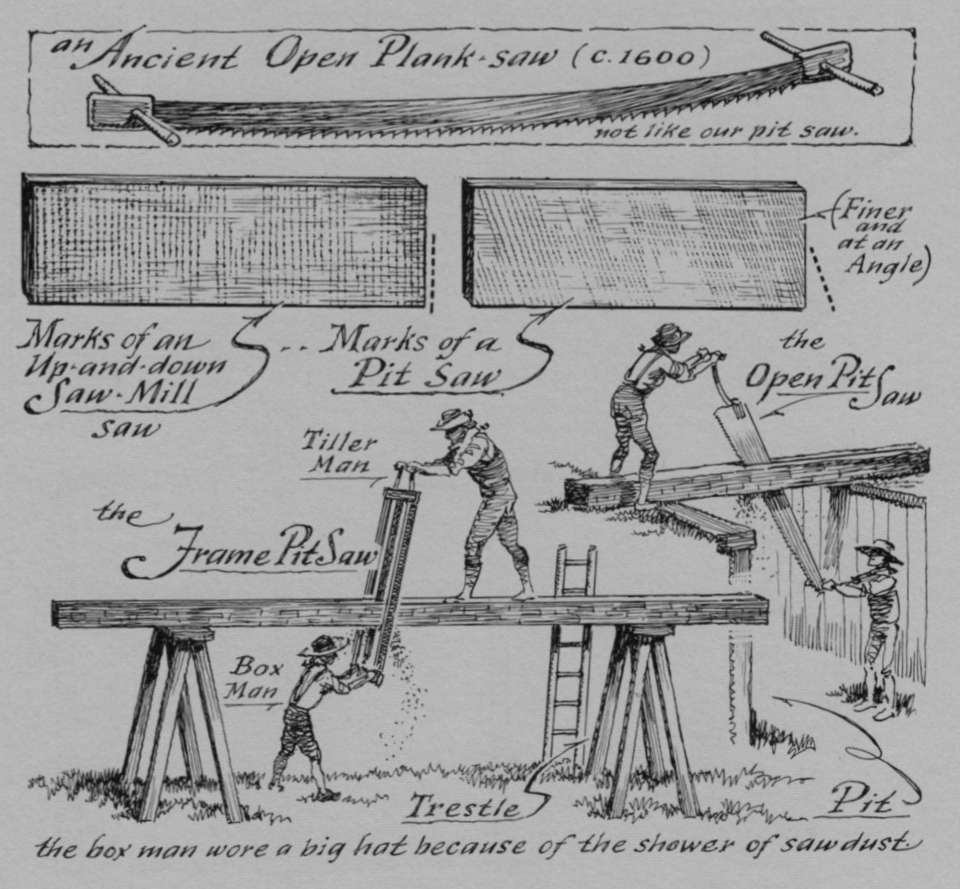 an Ancient Open Plank-saw (c.1600)
not like our pit saw.
(Finer
and
at an
Angle)
Marks of an
Up-and-down
Saw-Mill
saw
Marks of a
Pit Saw
the
Open Pit
Saw
Tiller
Man
the
Frame Pit Saw
Box
Man
Trestle
Pit
the box man wore a big hat because of the shower of sawdust.